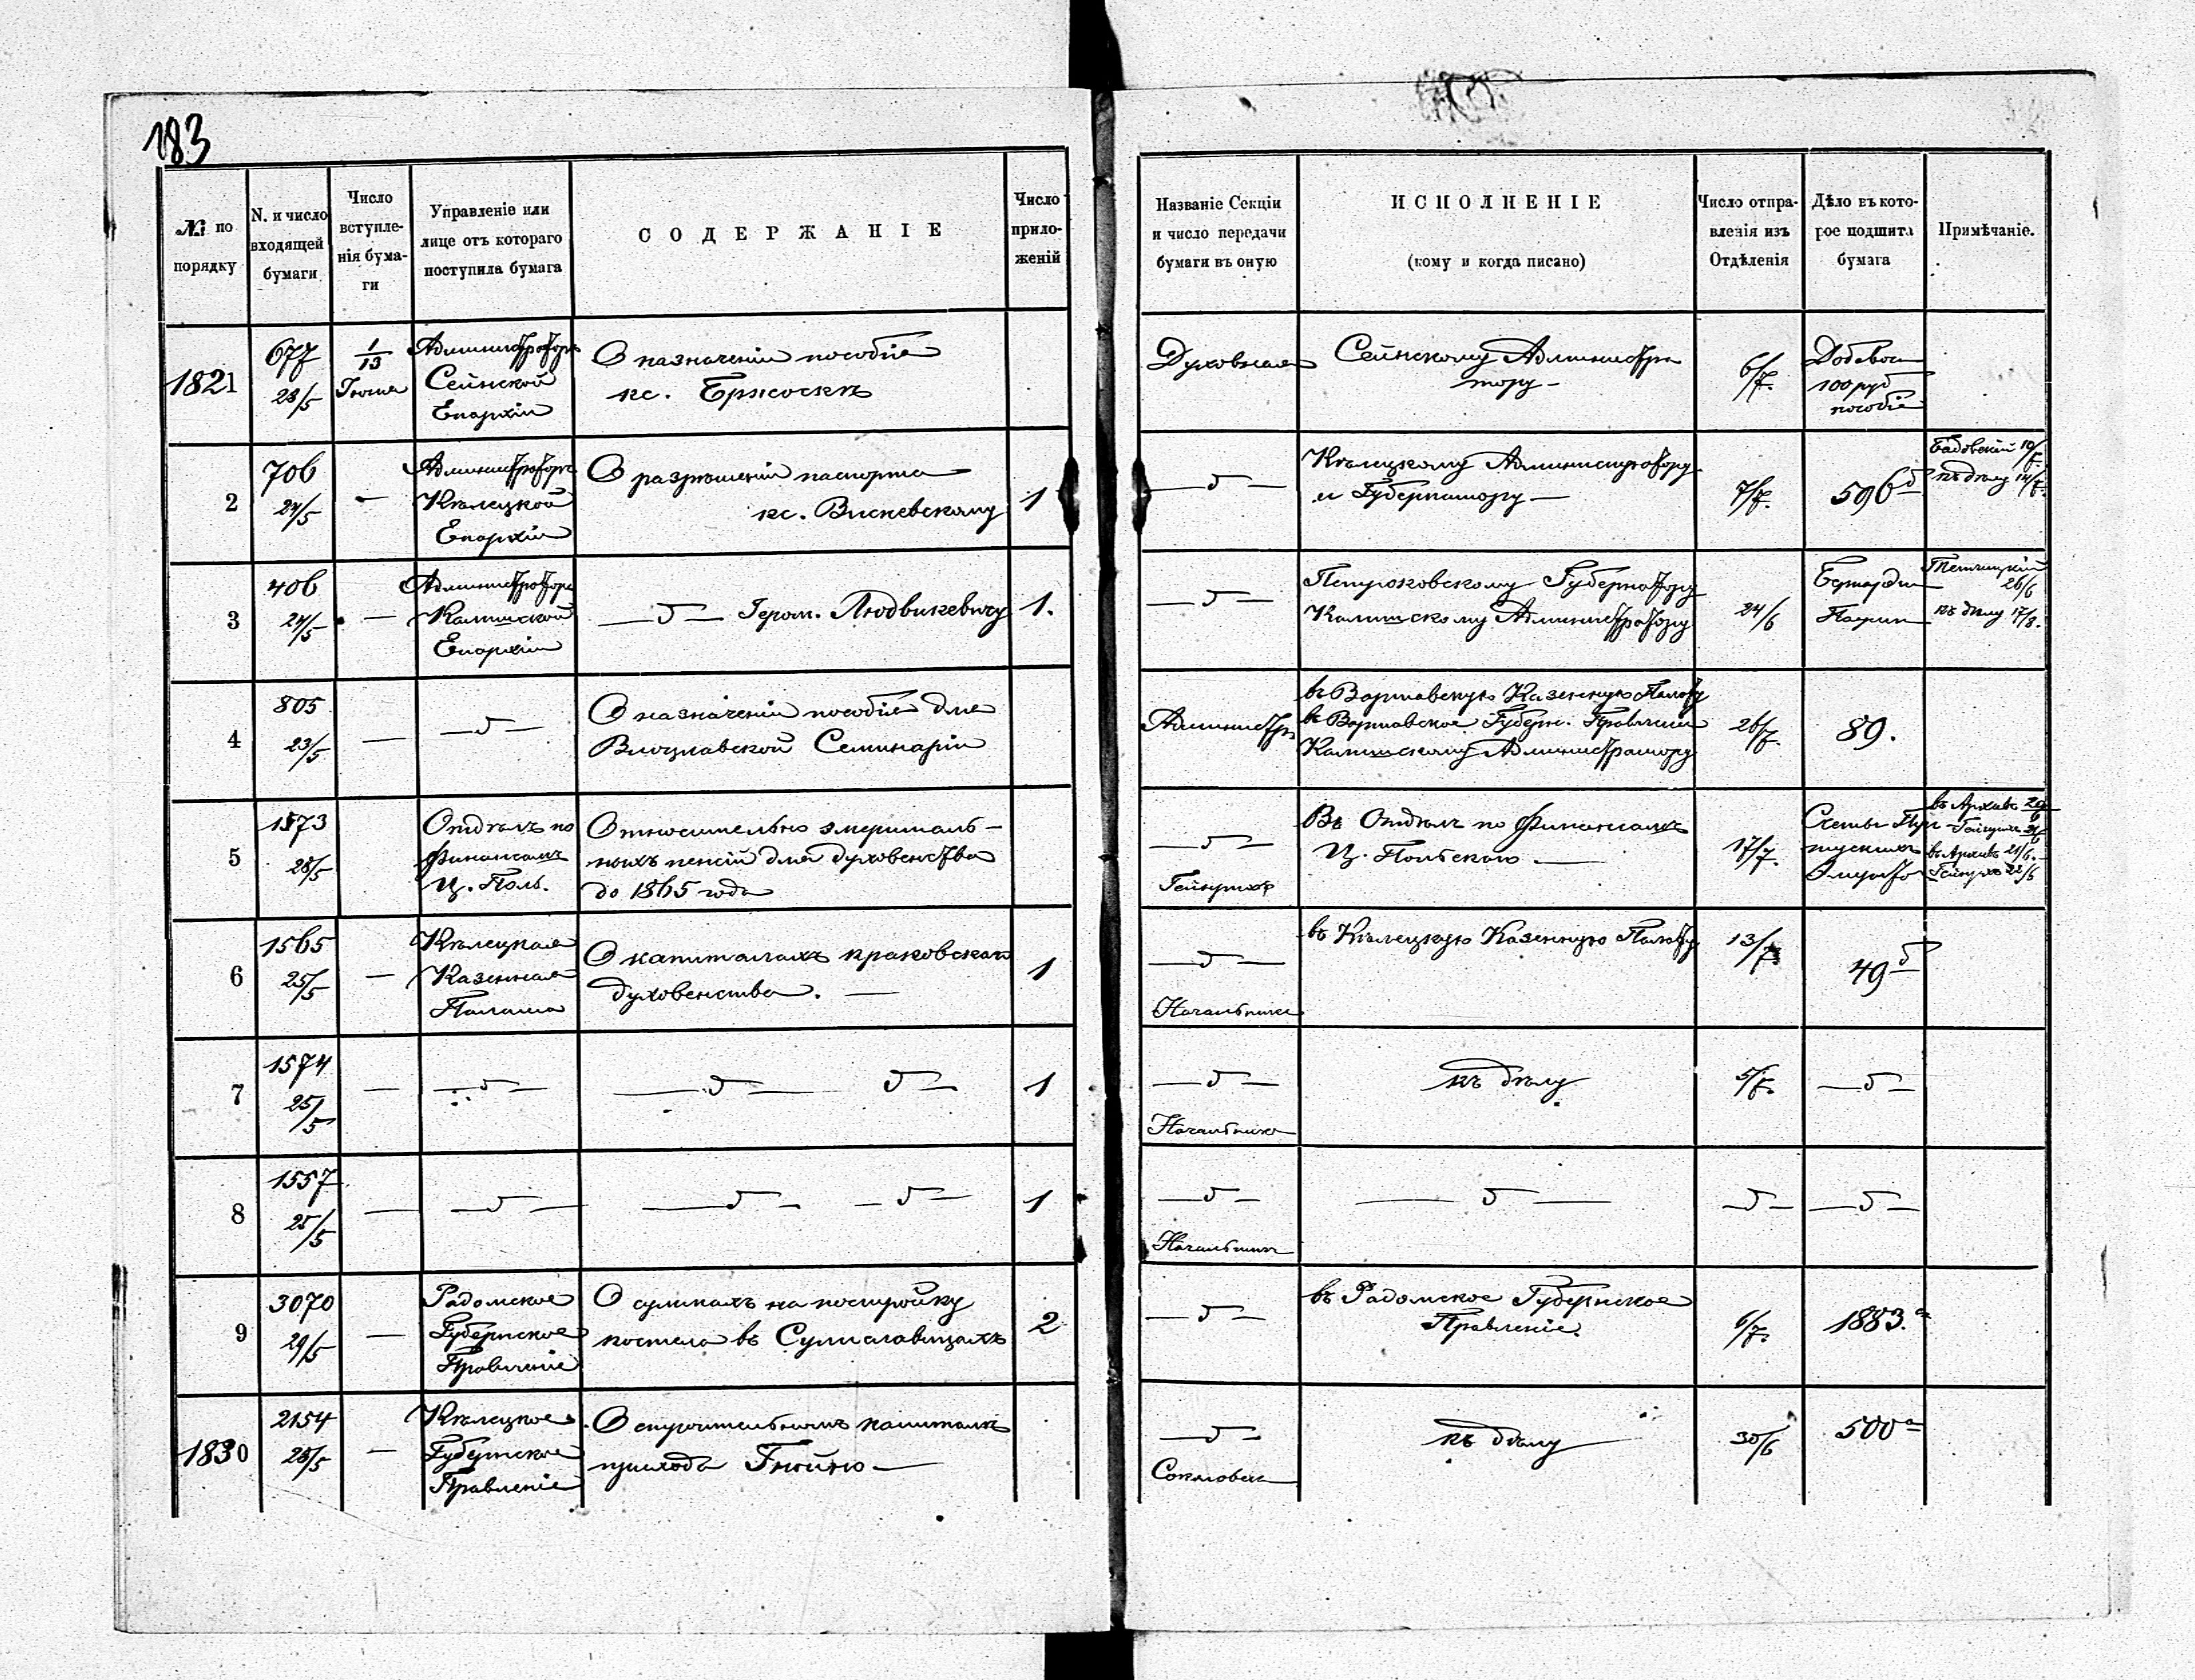 183
№ по порядку
N. и число входящей бумаги
Число вступле-нія бума-ги
Управленіе или лице отъ котораго поступила бумага
СОДЕРЖАНІЕ
Число прило-женій
Названіе Секціи и число передачи бумаги въ оную
ИСПОЛНЕНІЕ
(кому и когда писано)
Число отпра-вленія изъ Отдѣленія
Дѣло въ кото-рое подшита бумага
Примѣчаніе.
1821
677
28/5
1/13
Іюня
Администраторъ
Сейнской
Епархіи
О назначеніи пособія
кс. Бржоскѣ
Духовная
Сейнскому Администра
тору —
6/7.
100 руб
пособіе
2
706
24/5
—
Администраторъ
Кѣлецкой
Епархіи
О разрѣшеніи паспорта
кс. Висневскому
1
— " —
Кѣлецкому Администратору
и Губернатору —
7/7.
596 б
къ дѣлу
3
406
24/5
—
Администраторъ
Калишской
Епархіи
— " — Іером. Людвикевичу
1.
— " —
Петроковскому Губернатору
Калишскому Администратору
24/6
26/6
къ дѣлу 17/8.
4
805
23/5
—
— " —
О назначеніи пособія для
Влоцлавской Семинаріи
Администр
въ Варшавскую Казенную Палату
въ Варшавское Губерн. Правленіе
Калишскому Администратору
26/7.
89.
5
1573
28/5
Отдѣлъ по
финансамъ
Ц. Поль.
Относительно эмериталь-
ныхъ пенсій для духовенства
до 1865 года
— " —
Въ Отдѣлъ по Финансамъ
Ц. Польскаго —
17/7.
въ Архивъ
въ Архивъ 21/6.
22/6
6
1565
25/5
—
Кѣлецкая
Казенная
Палата
О капиталахъ краковскаго
духовенства. —
1
— " —
Начальника
въ Кѣлецкую Казенную Палату
13/7
49 б
7
1574
25/5
—
— " —
— " — " —
1
— " —
Начальника
къ дѣлу
5/7.
— " —
8
1557
25/5
—
— " —
— " — — " —
1
— " —
Начальника
— " —
— " —
— " —
9
3070
29/5
—
Радомское
Губернское
Правленіе
О суммахъ на постройку
костела въ Сулиславицахъ
2
— " —
въ Радомское Губернское
Правленіе.
6/7.
1883. а
1830
2154
28/5
—
Кѣлецкое
Губернское
Правленіе
О строительномъ капиталѣ
прихода Гнойно —
— " —
къ дѣлу
30/6
500 а